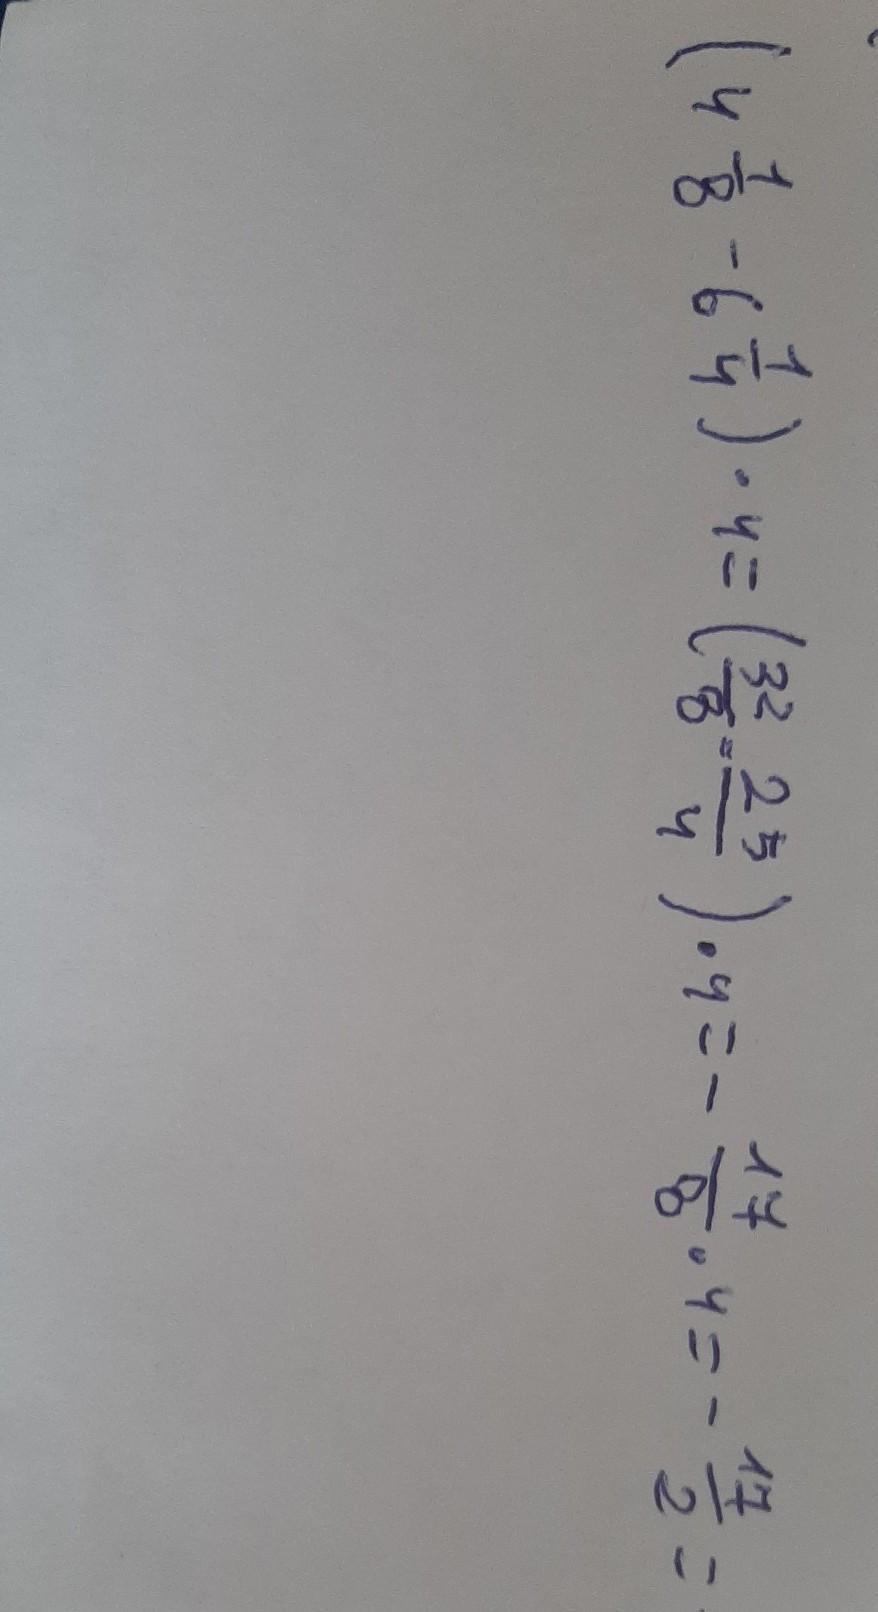 (4 1/8 - 6 1/4) · 4 = (32/8 - 25/4) · 4 = - 17/8 · 4 = - 17/2 =